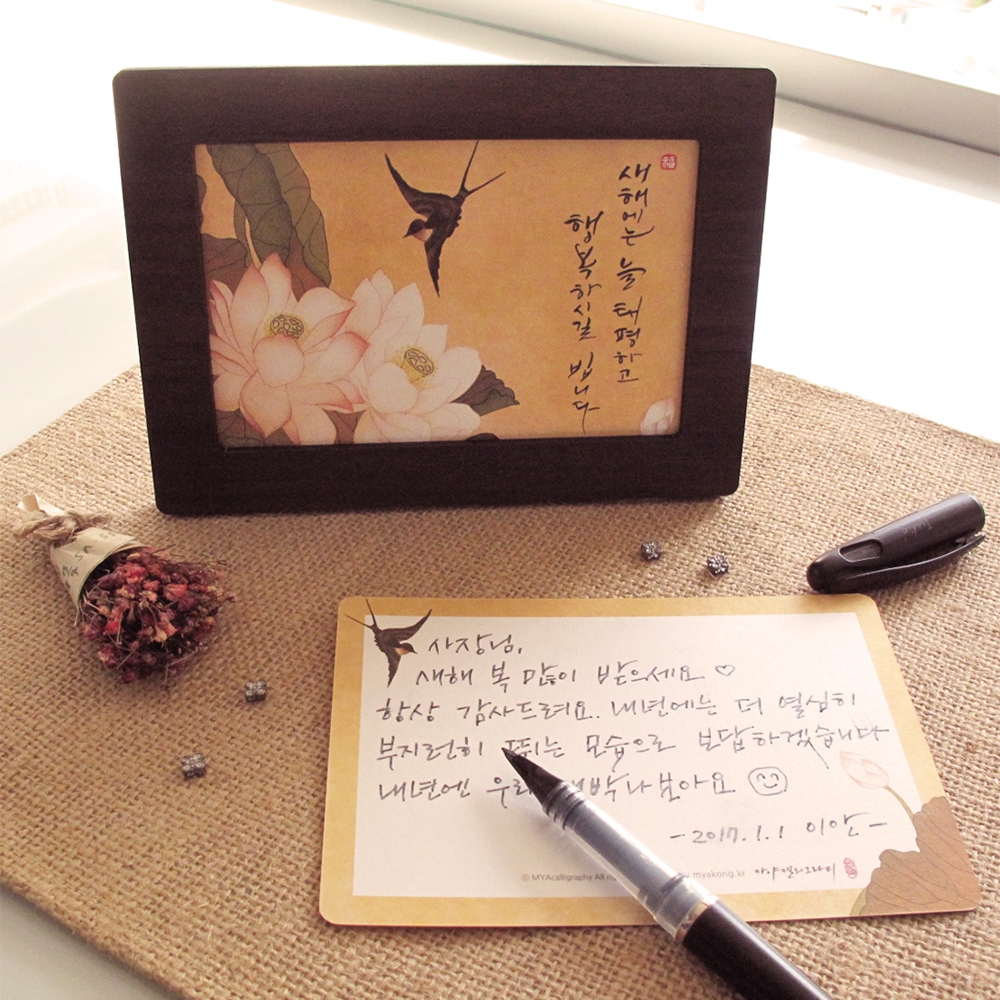 새해에는 늘 태평하고
행복하시길 빕니다
사장님,
새해 복 많이 받으세요 ♡
항상 감사드려요. 내년에는 더 열심히
부지런히 뛰는 모습으로 보답하겠습니다
내년엔 우리 대박나보아요
-2017.1.1 이안-
ⓒ MYAcalligraphy All myakong.kr 마야캘리그라피